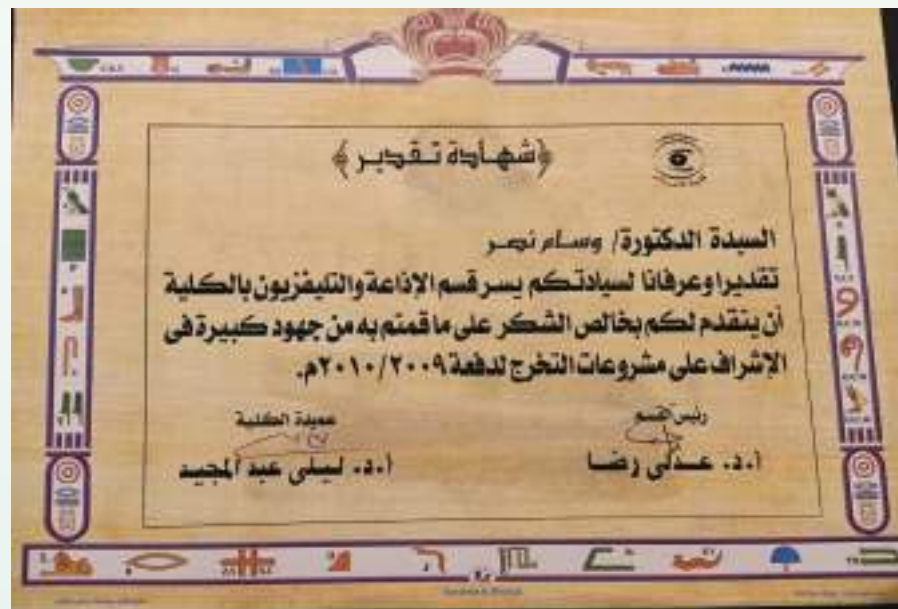 ﴿شهادة تقدير﴾
السيدة الدكتورة/ وسام نصر
تقديرا وعرفانا لسيادتكم يسر قسم الإذاعة والتليفزيون بالكلية
أن يتقدم لكم بخالص الشكر على ما قمتم به من جهود كبيرة فى
الإشراف على مشروعات التخرج لدفعة ٢٠١٠/٢٠٠٩م.
رئيس القسم
عميدة الكلية
أ.د. عدلى رضا
أ.د. ليلى عبد المجيد